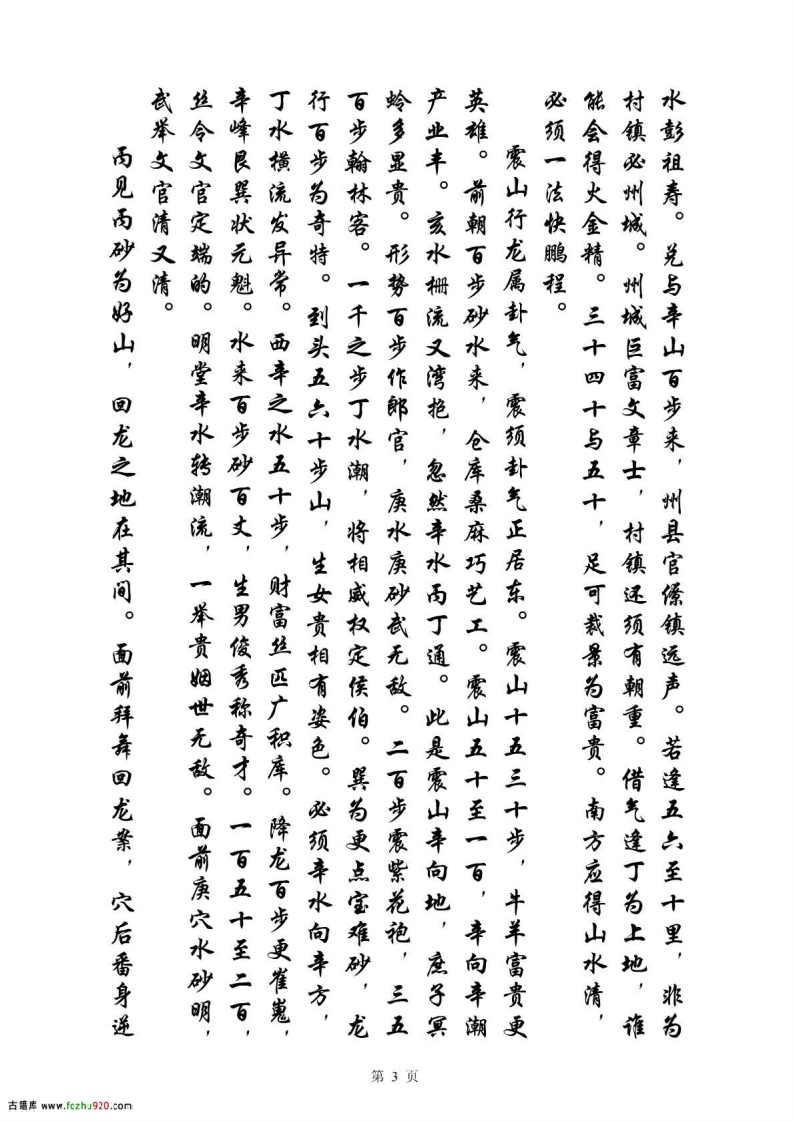 水彭祖寿。兑与辛山百步来，州县官僚镇远声。若逢五六至十里，非为
村镇必州城。州城巨富文章士，村镇还须有朝重。借气逢丁为上地，谁
能会得火金精。三十四十与五十，足可裁景为富贵。南方应得山水清，
必须一法快鹏程。
震山行龙属卦气，震须卦气正居东。震山十五三十步，牛羊富贵更
英雄。前朝百步砂水来，仓库桑麻巧艺工。震山五十至一百，辛向辛潮
产业丰。亥水栅流又湾抱，忽然辛水丙丁通。此是震山辛向地，庶子冥
蛉多显贵。形势百步作郎官，庚水庚砂武无敌。二百步震紫花袍，三五
百步翰林客。一千之步丁水潮，将相威权定侯伯。巽为更点宝难砂，龙
行百步为奇特。到头五六十步山，生女贵相有姿色。必须辛水向辛方，
丁水横流发异常。西辛之水五十步，财富丝匹广积库。降龙百步更崔嵬，
辛峰艮巽状元魁。水来百步砂百丈，生男俊秀称奇才。一百五十至二百，
丝令文官定端的。明堂辛水转潮流，一举贵姻世无敌。面前庚穴水砂明，
武举文官清又清。
丙见丙砂为好山，回龙之地在其间。面前拜舞回龙案，穴后番身逆
第 3 页
古籍库 www.fczhu920.com